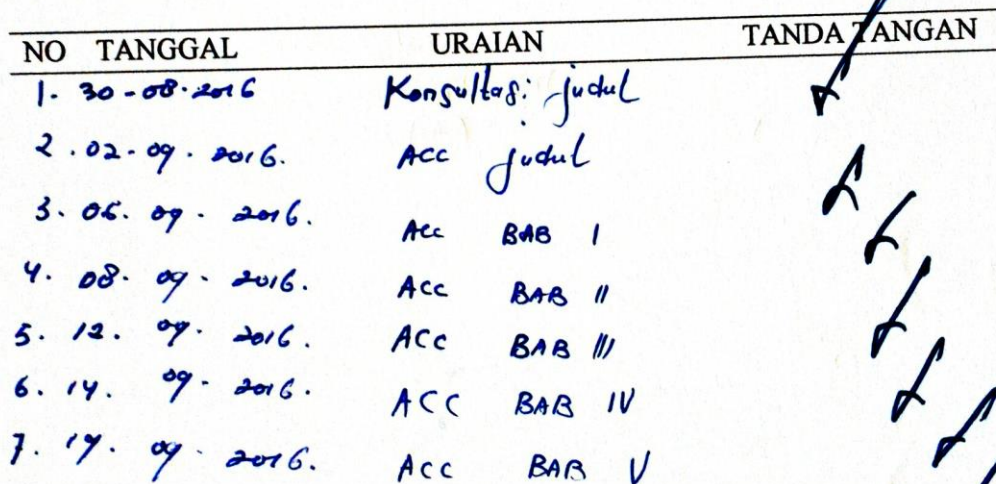 NO TANGGAL URAIAN TANDA TANGAN
1. 30-08-2016 Konsultasi judul
2. 02-09-2016. ACC judul
3. 06. 09. 2016. Acc BAB I
4. 08. 09. 2016. ACC BAB II
5. 12. 09. 2016. ACC BAB III
6. 14. 09. 2016. ACC BAB IV
7. 09. 2016. ACC BAB V